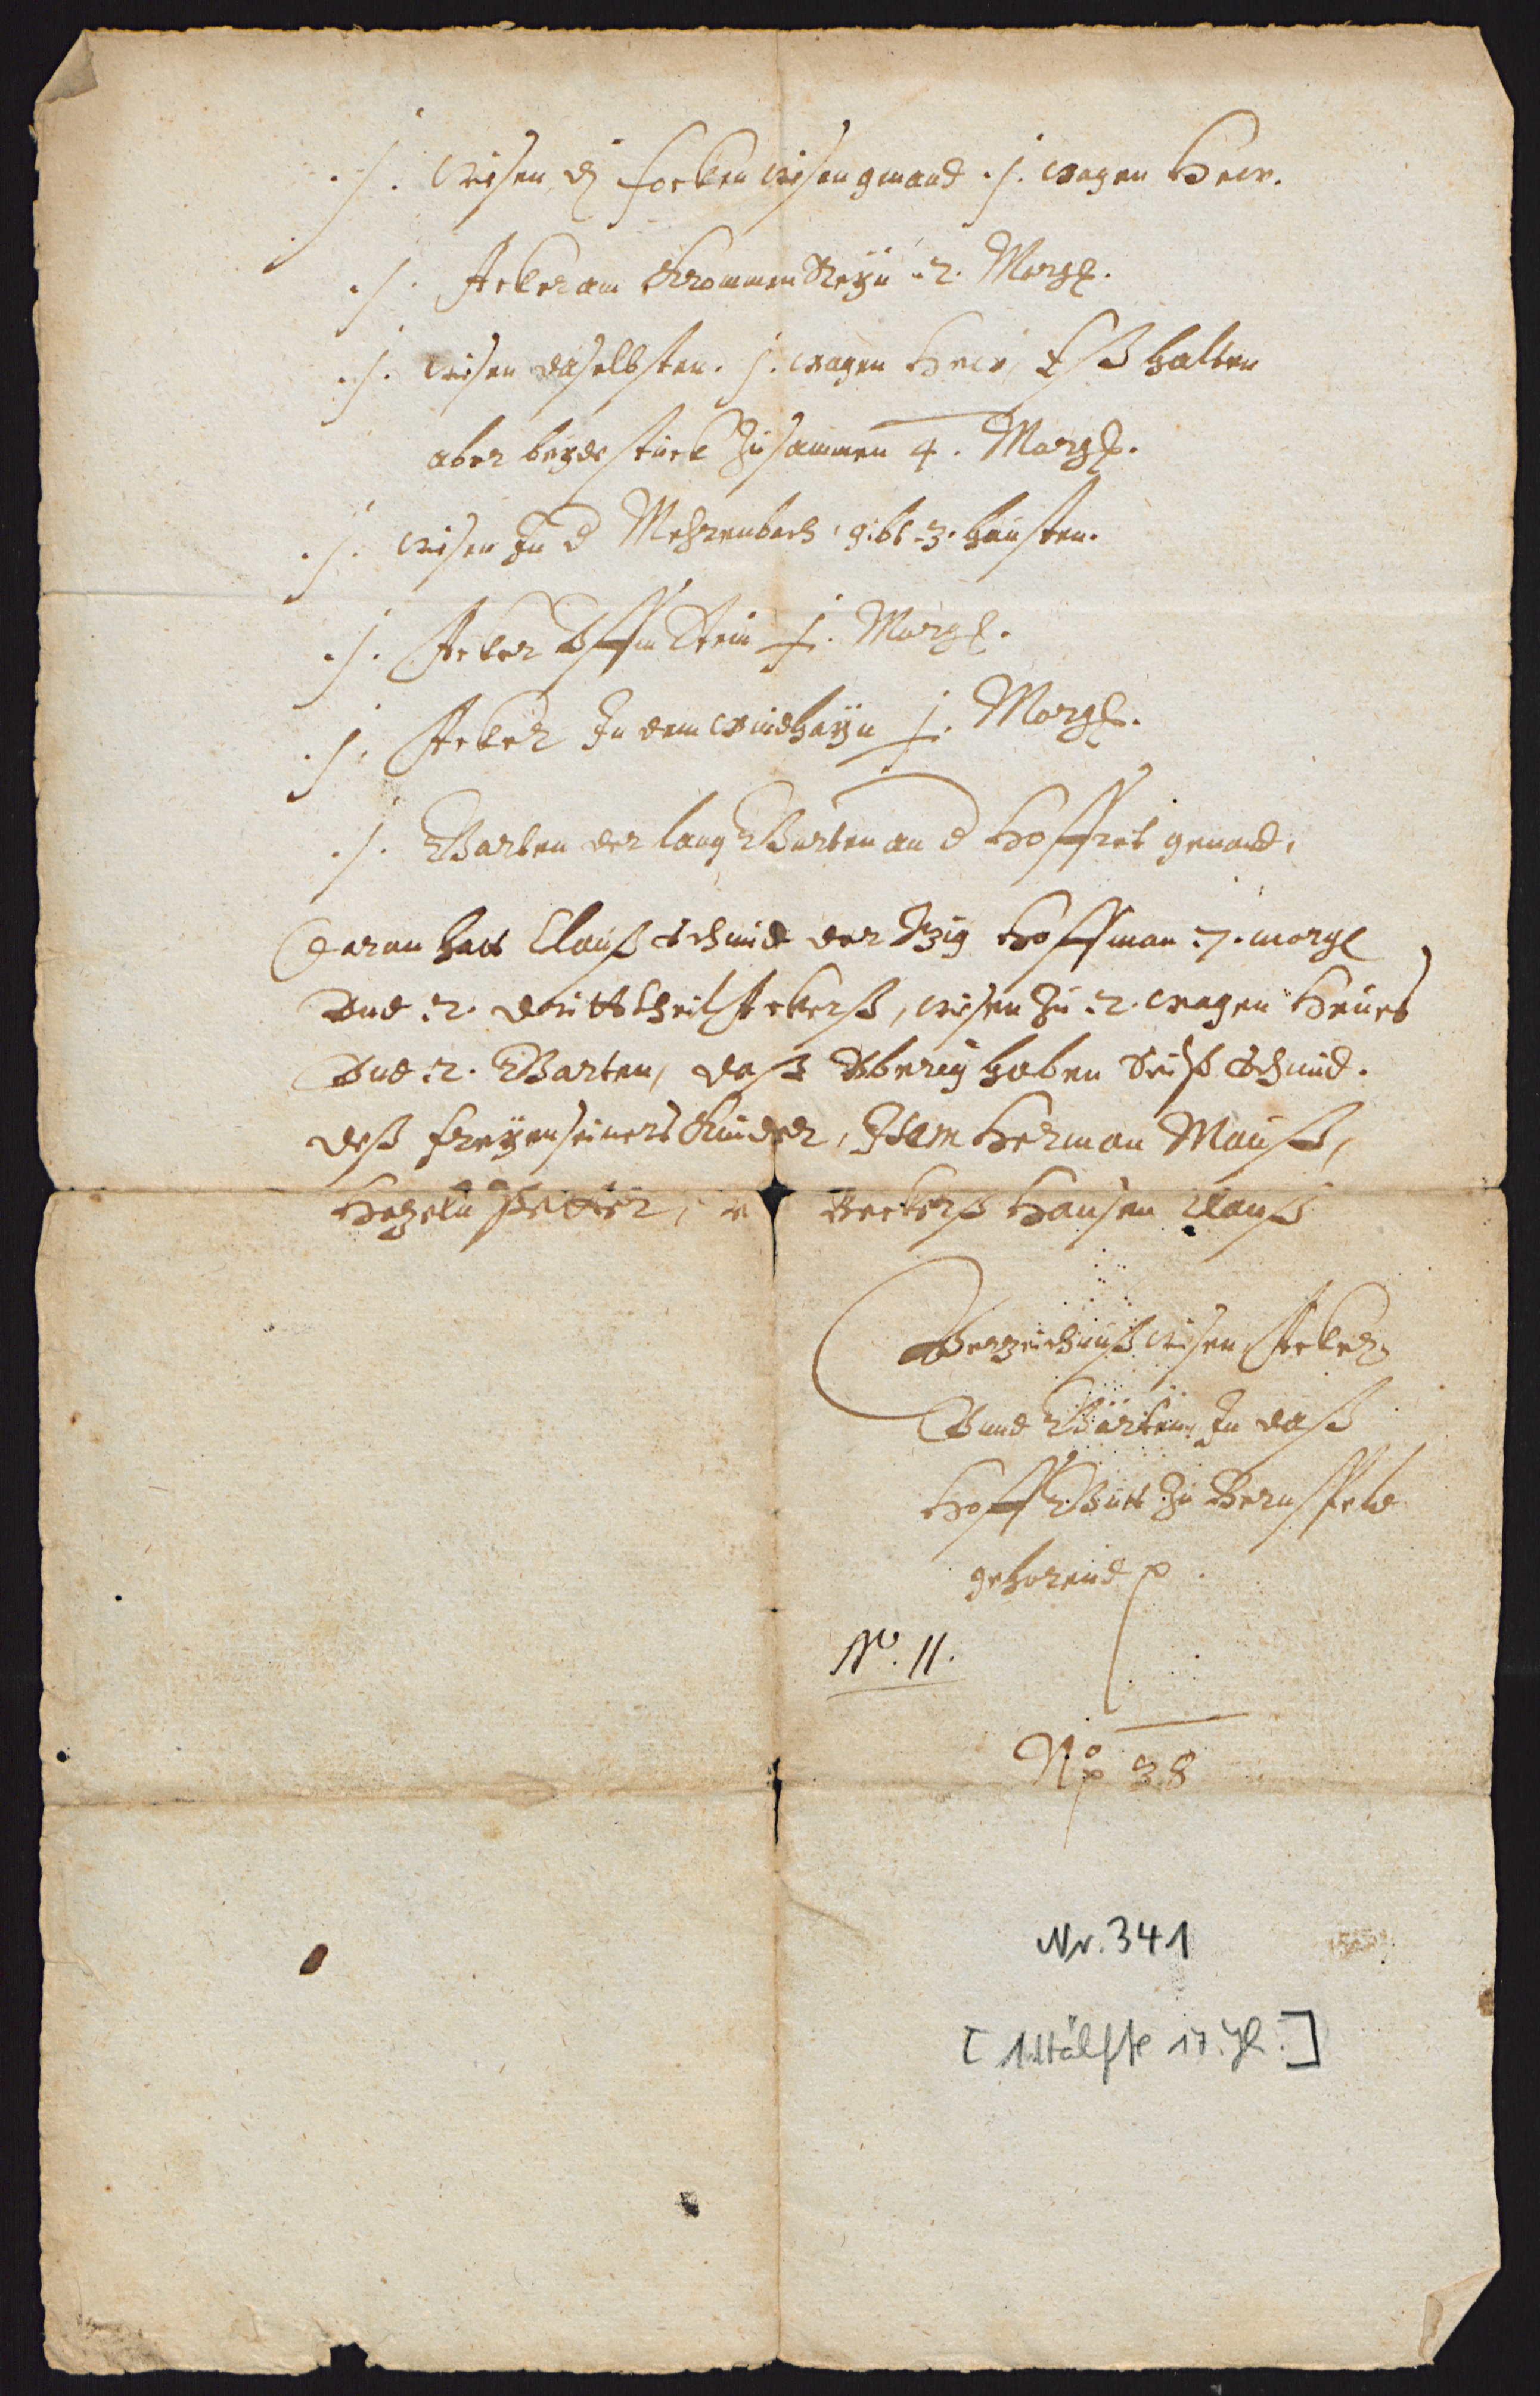 .j. wisen dj forken wisen gnand .j. wagen Hew.
.j. Acker am Krommen Reyn .2. Morg.
.j. wisen daselbsten .j. wagen Hew, Eß halten
aber beyde stück zusammen 4. Morg.
.j. wisen In d Mehrenbach, gibt .3. hausten.
.j. Acker vffm Stein j. Morg.
.j. Acker In dem windhayn j. Morg.
.j. Garten der lang Garten an d Hoffret genand,
Daran hatt Clauß Schmid der Itzig Hoffman .7. morg
Vnd .2. dritttheil Ackerß, wisen zu .2. wagen Heues
Vnd .2. Garten, daß vberig haben Seiß Schmid.
deß freyenseiners Kinder, Item Herman Mauß,
Hezeln Petter, Beckerß Hansen Clauß
Verzeichnuß wisen Acker,
Vnnd Gärten, In daß
Hoff Gutt zu Bernsfeld
gehorend p.
No. 11.
No 38
Nr. 341
[1. Hälfte 17. Jh.]